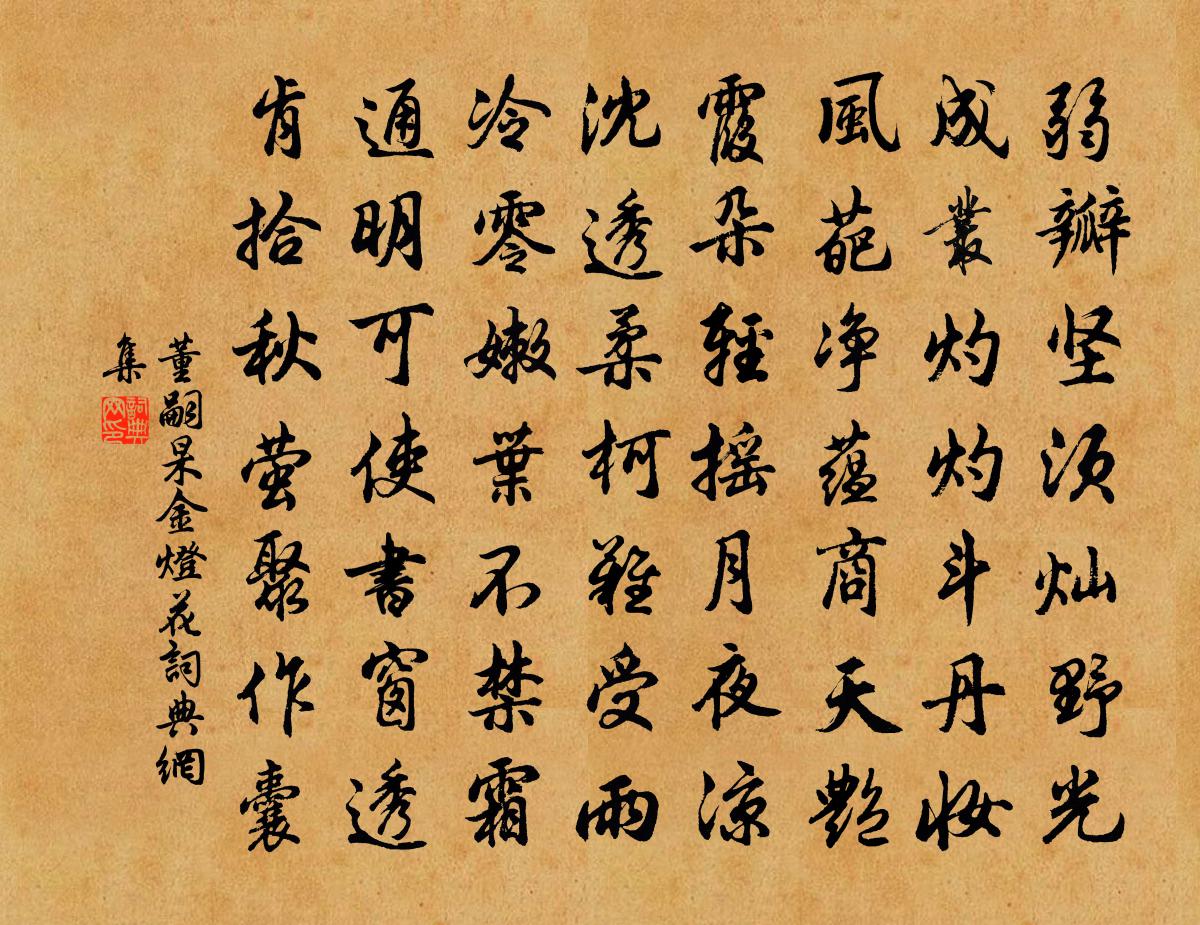 弱瓣坚须灿野光
成叢灼灼斗丹妆
風葩净蕴商天艷
霞朵輕摇月夜凉
沈透柔柯難受雨
冷零嫩葉不禁霜
通明可使書窗透
肯拾秋萤聚作囊
董嗣杲金燈花詞典網
集
詞典
网印